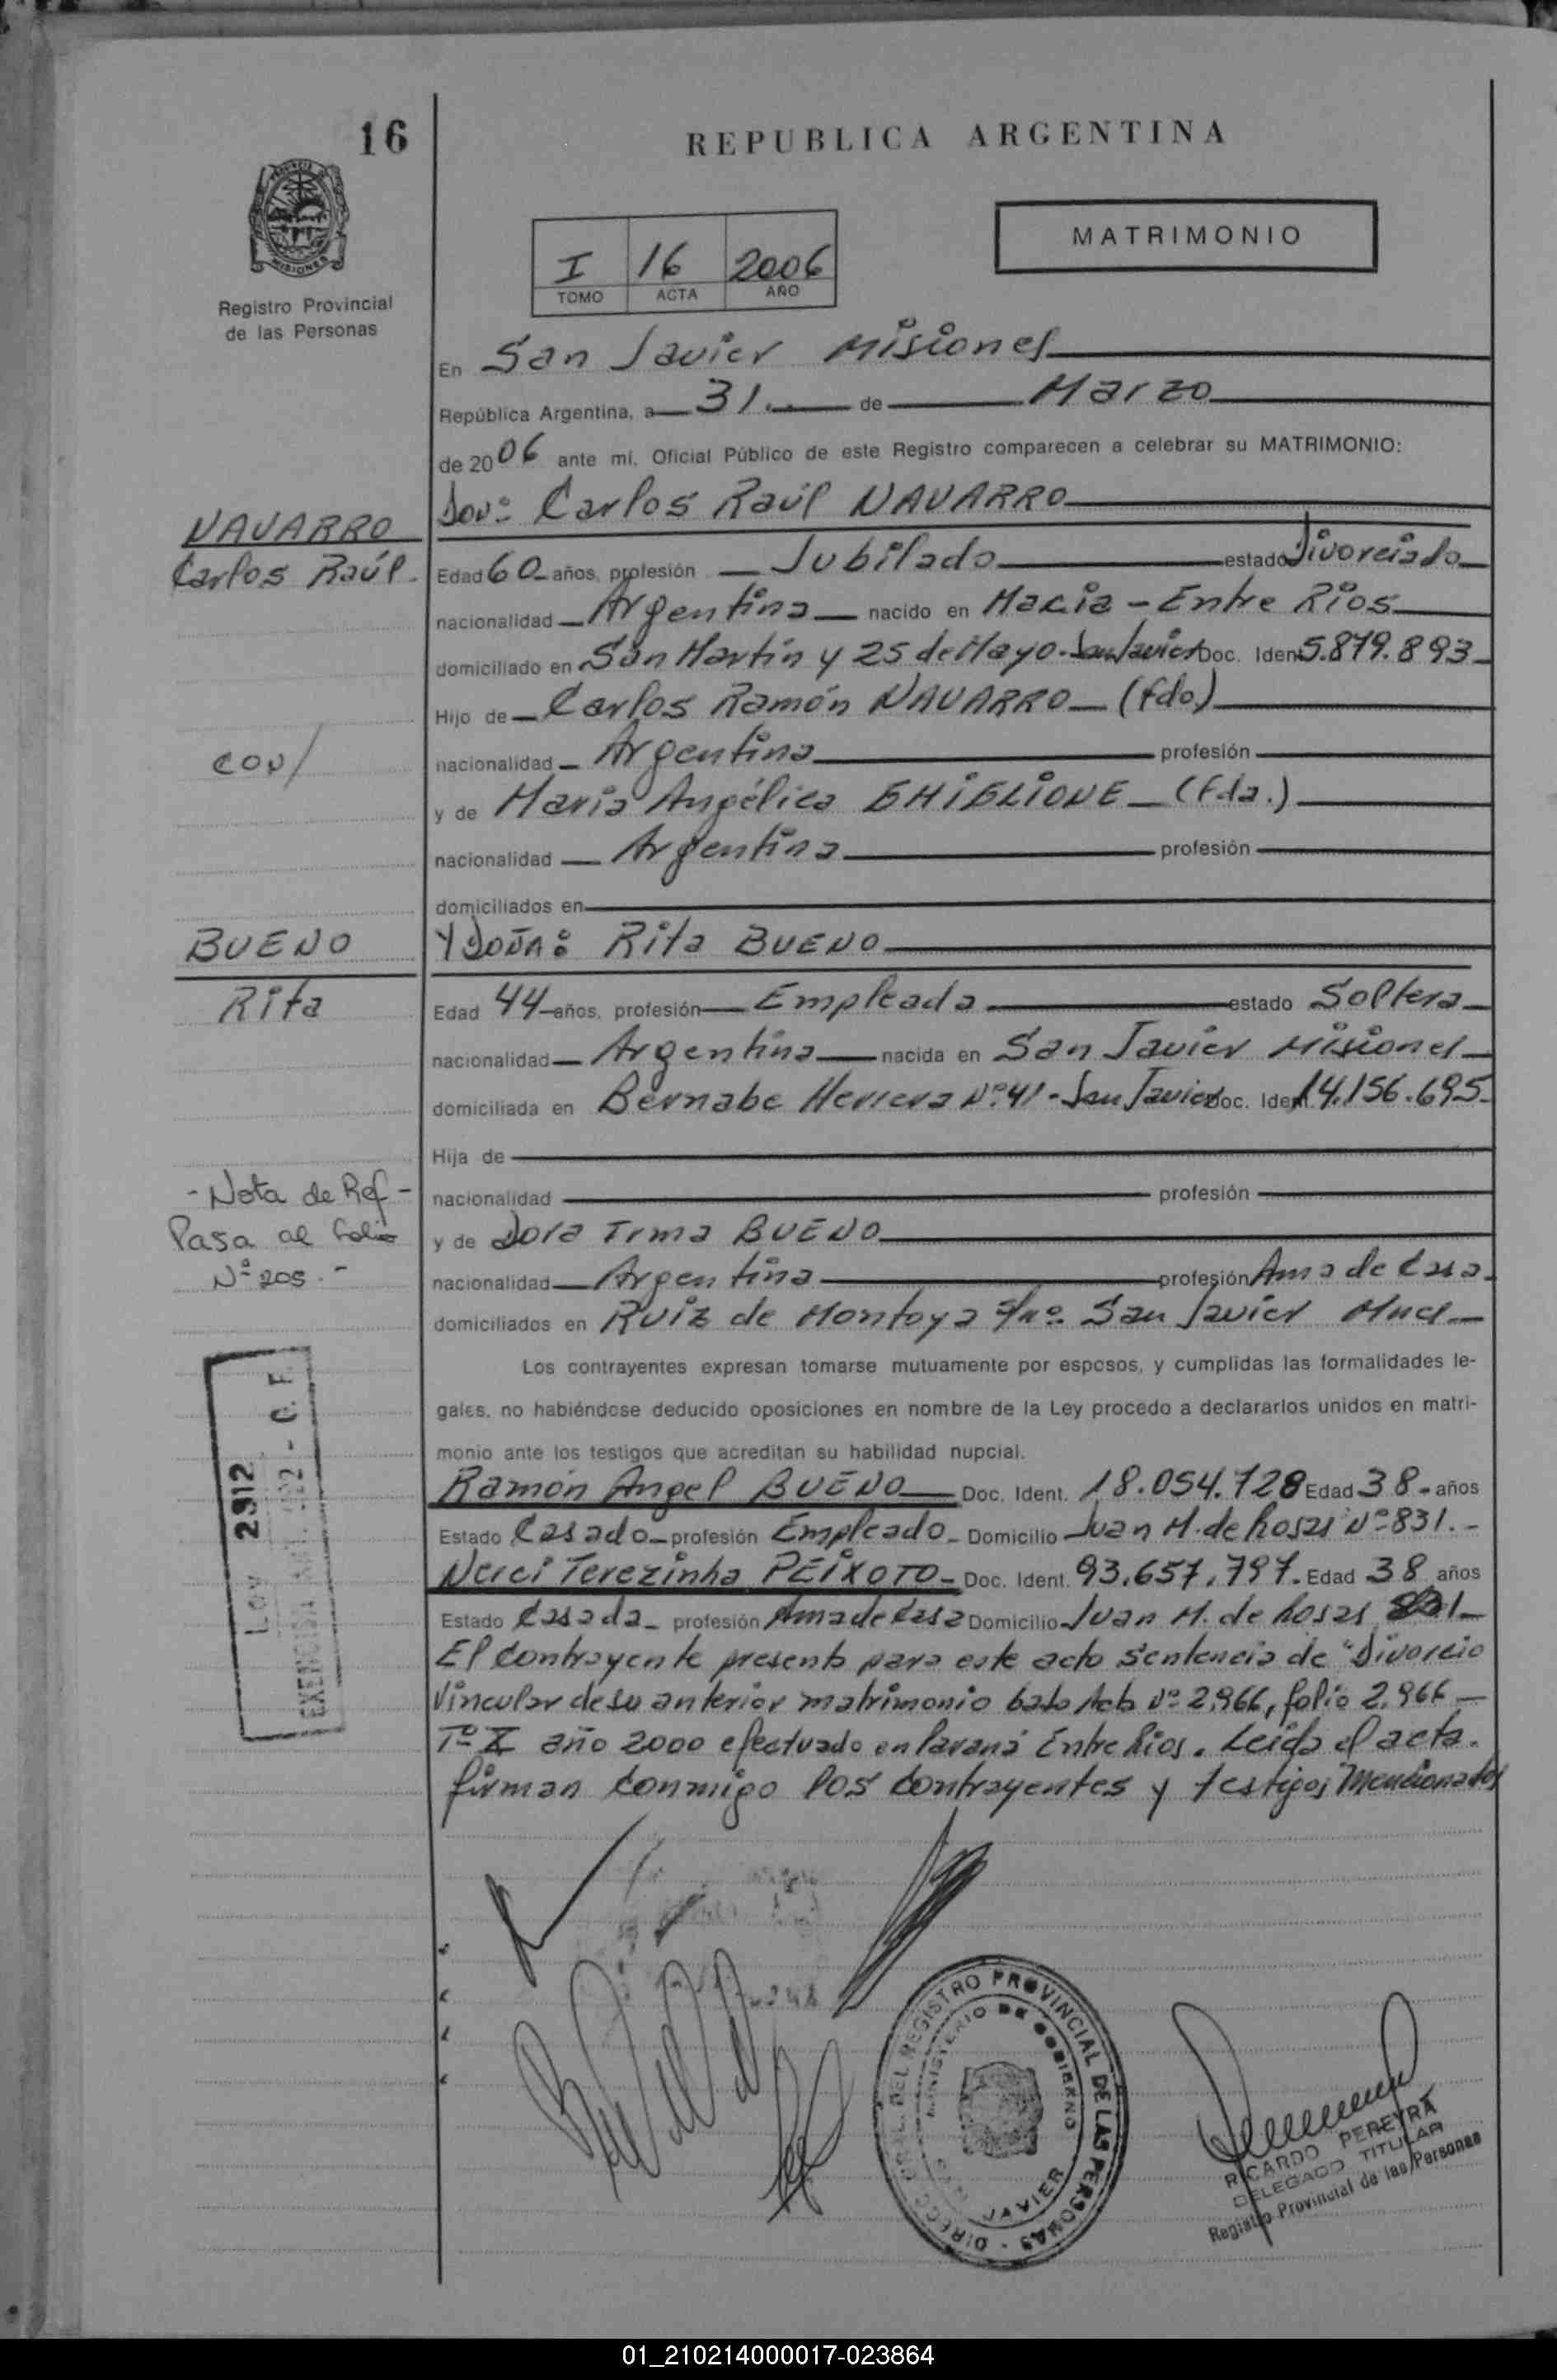 16
REPUBLICA ARGENTINA
MISIONES
Registro Provincial
de las Personas
I 16 2006
TOMO ACTA AÑO
MATRIMONIO
En San Javier Misiones
República Argentina, a 31 de Marzo
de 2006 ante mí, Oficial Público de este Registro comparecen a celebrar su MATRIMONIO:
Don: Carlos Raúl NAVARRO
NAVARRO
Carlos Raúl.
Edad 60 años, profesión Jubilado estado Divorciado
nacionalidad Argentina nacido en Macia - Entre Ríos
domiciliado en San Martín y 25 de Mayo. San Javier Doc. Ident. 5.879.893
Hijo de Carlos Ramón NAVARRO (fdo)
con/
nacionalidad Argentina profesión
y de María Angélica GHIGLIONE (fda.)
nacionalidad Argentina profesión
domiciliados en
BUENO
Rita
Y DOÑA: Rita BUENO
Edad 44 años, profesión Empleada estado Soltera
nacionalidad Argentina nacida en San Javier Misiones
domiciliada en Bernabe Herrera Nº 41 - San Javier Doc. Ident. 14.156.695
Hija de
- Nota de Ref -
Pasa al folio
Nº 205.-
nacionalidad profesión
y de Dora Irma BUENO
nacionalidad Argentina profesión Ama de Casa
domiciliados en Ruiz de Montoya s/nº San Javier Mnes
Los contrayentes expresan tomarse mutuamente por esposos, y cumplidas las formalidades le-
gales, no habiéndose deducido oposiciones en nombre de la Ley procedo a declararlos unidos en matri-
monio ante los testigos que acreditan su habilidad nupcial.
Ramón Angel BUENO Doc. Ident. 18.054.728 Edad 38 años
Estado Casado profesión Empleado Domicilio Juan M. de Rosas Nº 831.-
Nerci Terezinha PEIXOTO Doc. Ident. 93.657.797. Edad 38 años
Estado Casada profesión Ama de Casa Domicilio Juan M. de Rosas 831
El contrayente presenta para este acto Sentencia de "Divorcio
Vincular de su anterior matrimonio bajo Acta Nº 2.966, folio 2.966
Tº X año 2000 efectuado en Paraná Entre Ríos. Leída el acta.
firman conmigo los contrayentes y testigos mencionados
Ley 2912
EXENCION ART. 122 - C. F.
DIRECC. GRAL. DEL REGISTRO PROVINCIAL DE LAS PERSONAS
MINISTERIO DE GOBIERNO
SAN JAVIER
RICARDO PEREYRA
DELEGADO TITULAR
Registro Provincial de las Personas
01_210214000017-023864